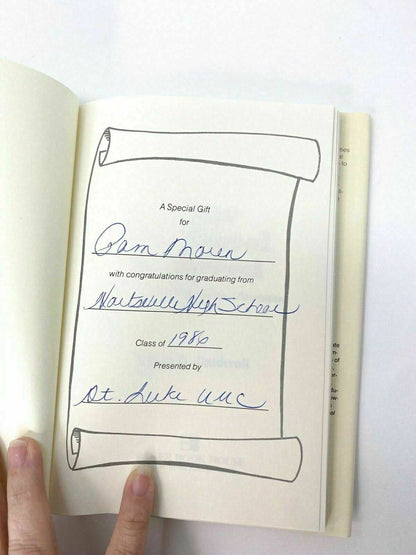 A Special Gift
for
Pam
with congratulations for graduating from
High School
Class of 1986
Presented by
St. Luke UMC